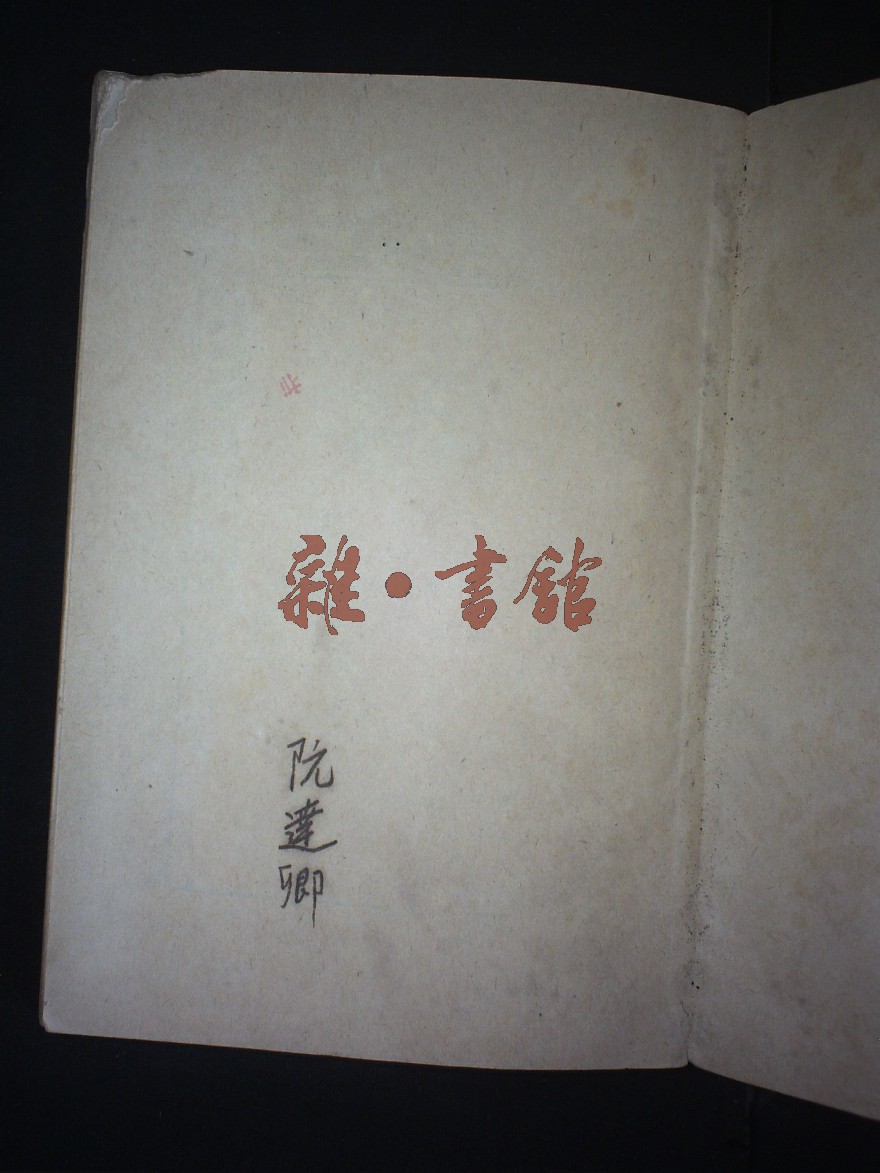 雜·書館
阮達卿